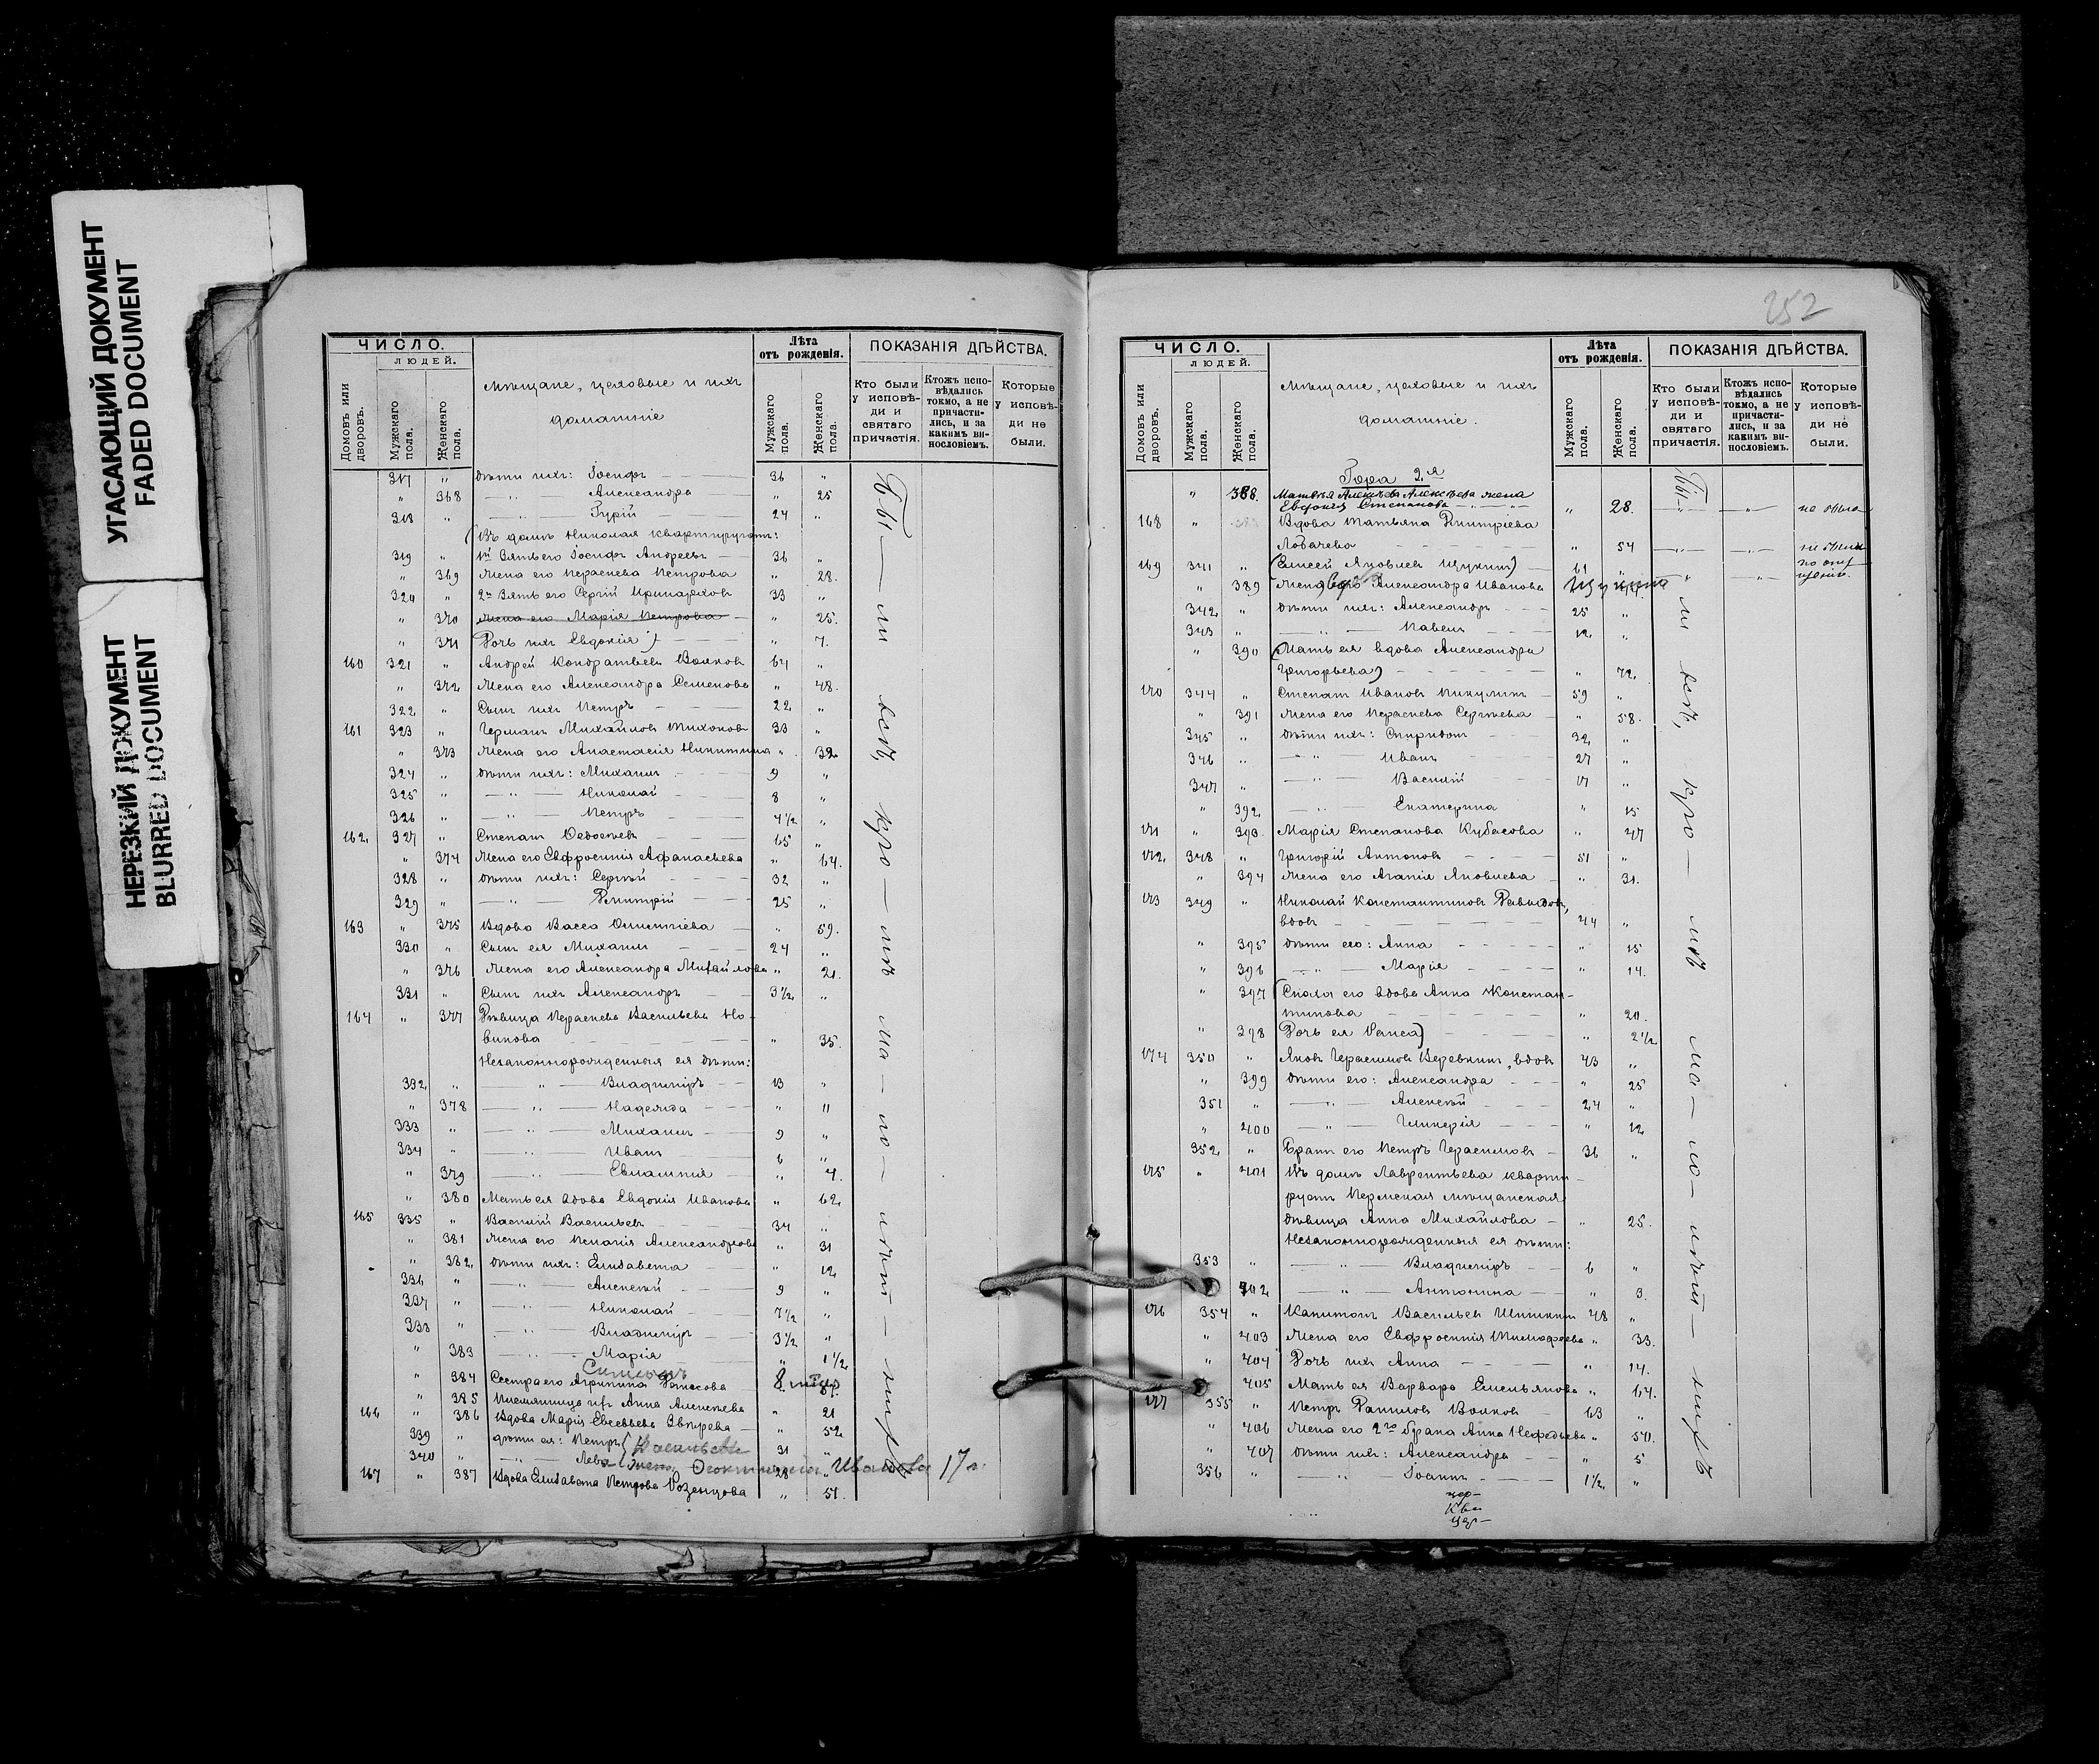 УГАСАЮЩИЙ ДОКУМЕНТ
FADED DOCUMENT
НЕРЕЗКИЙ ДОКУМЕНТ
BLURRED DOCUMENT
ЧИСЛО.
людей.
Домовъ или дворовъ.
Мужскаго пола.
Женскаго пола.
Мѣщане, цеховые и ихъ
домашніе
Лѣта
отъ рожденія.
Мужскаго пола.
Женскаго пола.
ПОКАЗАНІЯ ДѢЙСТВА.
Кто были у исповѣ-ди и святаго причастія.
Ктожъ испо-вѣдались токмо, а не причасти-лись, и за какимъ ви-нословіемъ.
Которые у исповѣ-ди не были.
317 " дѣти ихъ: Іосифъ 36 "
" 368 — " — Александра " 25
318 " — " — Гурій 24 "
(Въ домѣ Николая квартируютъ:
319 " 1й Зять его Іосифъ Андреевъ 36 "
" 369 Жена его Параскева Петрова " 28.
320 " 2й Зять его Сергій Принарховъ 33 "
" 370 Жена его Марія Петрова " 25.
" 371 Дочь ихъ Евдокія) " 7.
160 321 " Андрей Кондратьевъ Волковъ 64 "
" 372 Жена его Александра Семенова " 48.
322 " Сынъ ихъ Петръ 22 "
161 323 " Германъ Михайловъ Тихоновъ 33 "
" 373 Жена его Анастасія Никитина " 32
324 " дѣти ихъ: Михаилъ 9 "
325 " — " — Николай 8 "
326 " — " — Петръ 4½ "
162 327 " Степанъ Ѳедосѣевъ 65 "
" 374 Жена его Евфросинія Афанасьева " 64.
328 " дѣти ихъ: Сергѣй 32 "
329 " — " — Димитрій 25 "
163 " 375 Вдова Васса " 59.
330 " Сынъ ея Михаилъ 24 "
" 376 Жена его Александра Михайлова " 21.
331 " Сынъ ихъ Александръ 3½ "
164 " 377 Дѣвица Параскева Васильева Но-
викова " 35.
Незаконнорожденныя ея дѣти:
332 " — " — Владиміръ 13 "
" 378 — " — Надежда " 11
333 " — " — Михаилъ 9 "
334 " — " — Иванъ 6 "
" 379 — " — Евлампія " 4.
" 380 Мать ея вдова Евдокія Иванова " 62
165 335 " Василій Васильевъ 34 "
" 381 Жена его Пелагія Александрова " 31
" 382 дѣти ихъ: Елизавета " 12
336 " — " — Алексѣй 9 "
337 " — " — Николай 7½ "
338 " — " — Владиміръ 3½ "
" 383 — " — Марія " 1½
" 384 Сестра его Агрипина
" 385 Племянница их Анна Алексѣева " 21
166 " 386 Вдова Марія Евсеѣева Звѣрева " 52
339 " дѣти ея: Петръ 31 "
340 " — " — Левъ 28 "
Жена Иванова 17 л.
167 " 387 Вдова Елизавета Петрова Розенцова " 51.
Бы — ли всѣ, кро — мѣ ма — ло — лѣт — нихъ
252
ЧИСЛО.
людей.
Домовъ или дворовъ.
Мужскаго пола.
Женскаго пола.
Мѣщане, цеховые и ихъ
домашніе.
Лѣта
отъ рожденія.
Мужскаго пола.
Женскаго пола.
ПОКАЗАНІЯ ДѢЙСТВА.
Кто были у исповѣ-ди и святаго причастія.
Ктожъ испо-вѣдались токмо, а не причасти-лись, и за какимъ ви-нословіемъ.
Которые у исповѣ-ди не были.
Гора 2я
" 388. Матвѣя Алексѣева Алексѣева жена
Евдокія Степанова " 28. — " — — " — не была
168 " Вдова Татьяна Димитріева
Лобачева " 54 — " — — " — не была
169 341 " (Елисей Яковлевъ Щукинъ) 61 "
" 389 Жена его Александра Иванова Щукина
342 " дѣти ихъ: Александръ 25 "
343 " — " — Павелъ 12 "
" 390 (Мать ея вдова Александра
Григорьева) " 72
170 344 " Степанъ Ивановъ Пикулинъ 59 "
" 391 Жена его Параскева Сергѣева " 58.
345 " дѣти ихъ: Спиридонъ 32 "
346 " — " — Иванъ 27 "
347 " — " — Василій 17 "
" 392 — " — Екатерина " 15
171 " 393. Марія Степанова Кубасова " 47
172 348 " Григорій Антоновъ 51 "
" 394 Жена его Агапія Яковлева " 31.
173 349 " Николай Константиновъ Давыдовъ,
вдовъ 44 "
" 395 дѣти его: Анна " 15
" 396 — " — Марія " 14.
" 397 (Сноха его вдова Анна Констан-
тинова " 20.
" 398 Дочь ея Раиса) " 2½
174 350 " Яковъ Герасимовъ Веревкинъ, вдовъ 43 "
" 399 дѣти его: Александра " 25
351 " — " — Алексѣй 24 "
" 400 — " — Гликерія " 12
352 " Братъ его Петръ Герасимовъ 36 "
175 " 401 Въ домѣ Лаврентьева кварти-
руетъ Пермская мѣщанская
дѣвица Анна Михайлова " 25.
Незаконнорожденныя ея дѣти:
353 " — " — Владиміръ 6 "
" 402 — " — Антонина " 3.
176 354 " Капитонъ Васильевъ Шишкинъ 48 "
" 403 Жена его Евфросинія Тимофеева " 33.
" 404 Дочь ихъ Анна " 14.
405 Мать ея Варвара Емельянова " 64.
177 355 " Петръ Даниловъ Волковъ 63 "
" 406 Жена его 2го брака Анна Нефедьева " 50.
" 407 дѣти ихъ: Александра " 5
356 " — " — Іоаннъ 1½ "
Бы — ли всѣ, кро — мѣ ма — ло — лѣт — нихъ